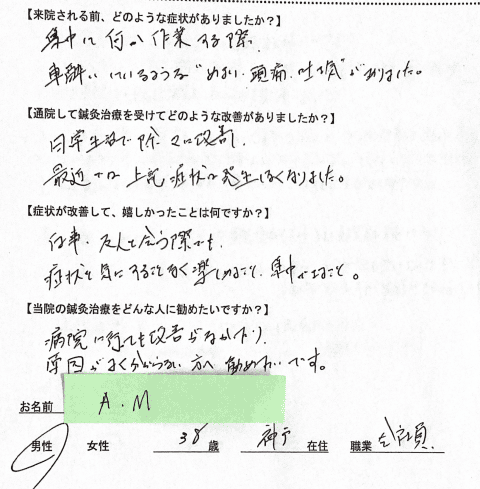 【来院される前、どのような症状がありましたか?】
集中して何か作業する際、
車酔いしているような"めまい・頭痛・吐き気"がありました。
【通院して鍼灸治療を受けてどのような改善がありましたか?】
日常生活で徐々に改善し、
最近では上記症状は発生しなくなりました。
【症状が改善して、嬉しかったことは何ですか?】
仕事・友人と会う際でも、
症状を気にすることなく楽しめること、集中できること。
【当院の鍼灸治療をどんな人に勧めたいですか?】
病院に行っても改善がなかったり、
原因がよく分からない方へ勧めたいです。
お名前 A.M
男性 女性 38歳 神戸在住 職業 会社員.